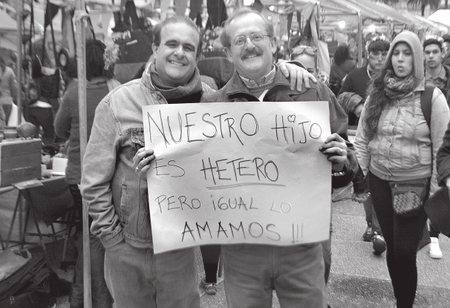 NUESTRO HiJO
ES HETERO
PERO iGUAL LO
AMAMOS !!!